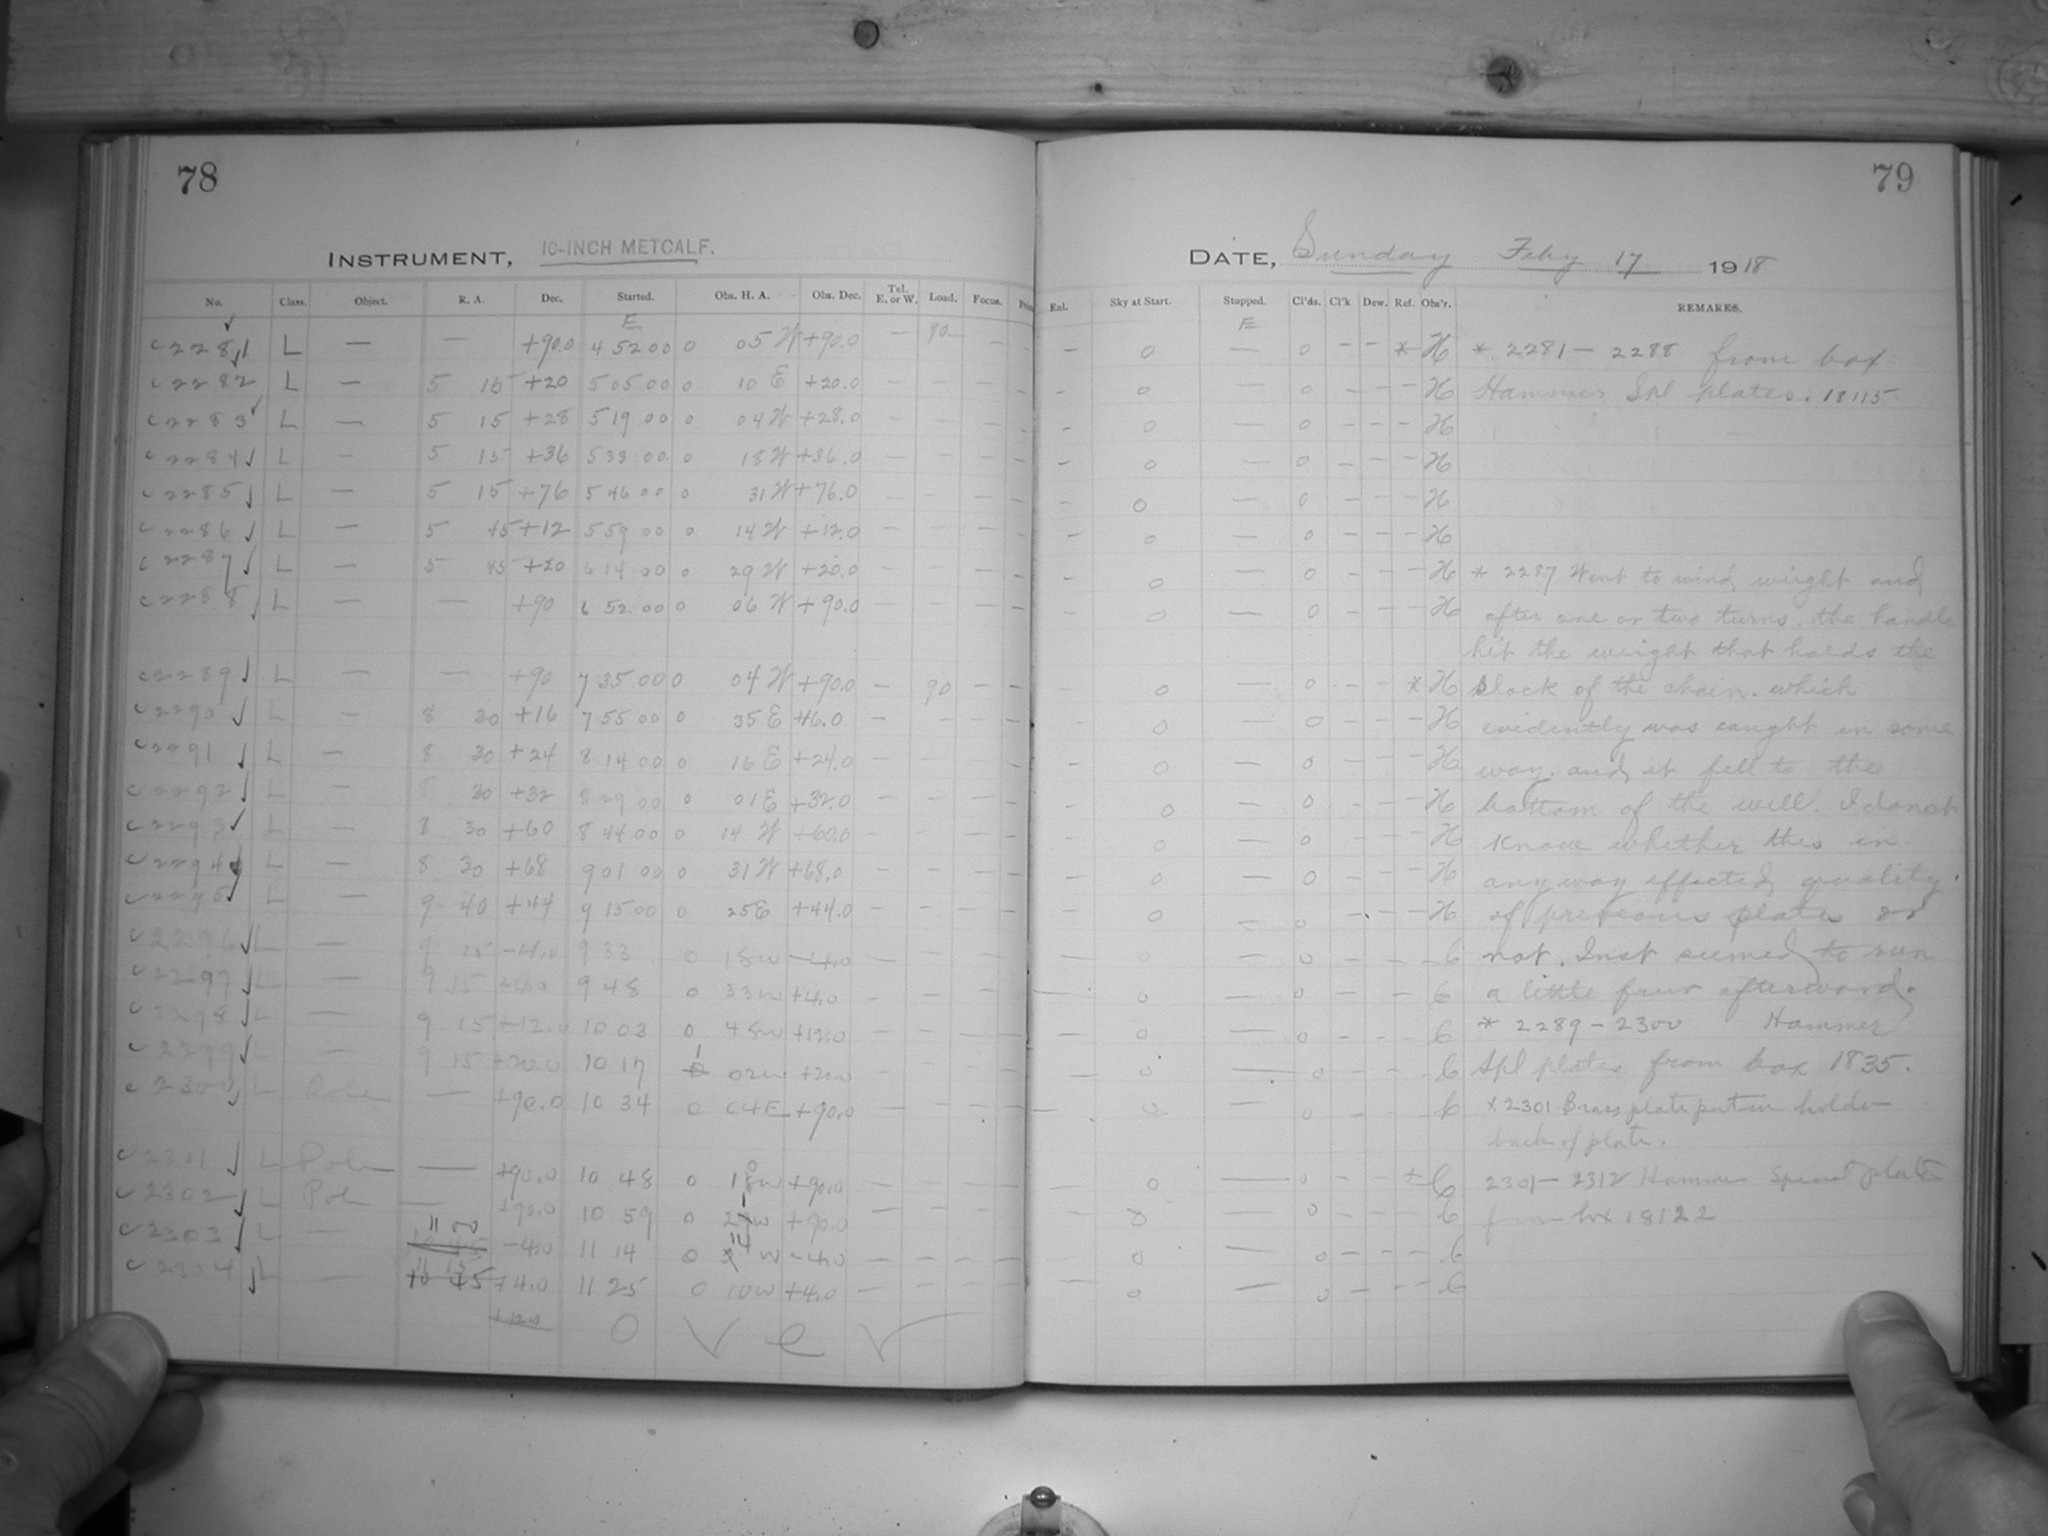 78
INSTRUMENT, 10-INCH METCALF.
No. Class. Object. R. A. Dec. Started. Obs. H. A. Obs. Dec. Tel. E. or W. Load. Focus.
E
c 2281 L — — +90.0 4 52 00 0 05 W +90.0 — 90 —
c 2282 L — 5 15 +20 5 05 00 0 10 E +20.0 — — —
c 2283 L — 5 15 +28 5 19 00 0 04 W +28.0 — — —
c 2284 L — 5 15 +36 5 33 00 0 18 W +36.0 — — —
c 2285 L — 5 15 +76 5 46 00 0 31 W +76.0 — — —
c 2286 L — 5 45 +12 5 59 00 0 14 W +12.0 — — —
c 2287 L — 5 45 +20 6 14 00 0 29 W +20.0 — — —
c 2288 L — — +90 6 52 00 0 06 W +90.0 — — —
c 2289 L — — +90 7 35 00 0 04 W +90.0 — 90 —
c 2290 L — 8 30 +16 7 55 00 0 35 E +16.0 — — —
c 2291 L — 8 30 +24 8 14 00 0 16 E +24.0 — — —
c 2292 L — 8 30 +32 8 29 00 0 01 E +32.0 — — —
c 2293 L — 8 30 +60 8 44 00 0 14 W +60.0 — — —
c 2294 L — 8 30 +68 9 01 00 0 31 W +68.0 — — —
c 2295 L — 9 40 +44 9 15 00 0 25 E +44.0 — — —
c 2296 L — 9 15 -4.0 9 33 0 18 W -4.0 — — —
c 2297 L — 9 15 +4.0 9 48 0 33 W +4.0 — — —
c 2298 L — 9 15 +12.0 10 03 0 48 W +12.0 — — —
c 2299 L — 9 15 +20.0 10 17 1 02 W +20.0 — — —
c 2300 L Pole — +90.0 10 34 0 04 E +90.0 — — —
c 2301 L Pole — +90.0 10 48 0 W +90.0 — — —
c 2302 L Pole — +90.0 10 59 0 W +90.0 — — —
c 2303 L — 11 00 -4.0 11 14 0 W -4.0 — — —
c 2304 L — 11 15 +4.0 11 25 0 10 W +4.0 — — —
+12.0
Over
79
DATE, Sunday Feby 17 1918
Enl. Sky at Start. Stopped. Cl'ds. Cl'k Dew. Ref. Obs'r. REMARKS.
E
— 0 — 0 — — * H * 2281 — 2288 from box
— 0 — 0 — — — H Hammer Spl plates. 18115
— 0 — 0 — — — H
— 0 — 0 — — — H
— 0 — 0 — — — H
— 0 — 0 — — — H
— 0 — 0 — — — H * 2287 Went to wind weight and
— 0 — 0 — — — H after one or two turns, the handle
hit the weight that holds the
— 0 — 0 — — * H slack of the chain. which
— 0 — 0 — — — H evidently was caught in some
— 0 — 0 — — — H way. and it fell to the
— 0 — 0 — — — H bottom of the well. I do not
— 0 — 0 — — — H know whether this in
— 0 — 0 — — — H any way effected quality
— 0 — 0 — — — H of previous plates or
— 0 — 0 — — — 6 not. Inst seemed to run
— 0 — 0 — — — 6 a little afterward.
— 0 — 0 — — — 6 * 2289 — 2300 Hammer
— 0 — 0 — — — 6 Spl plates from box 1835.
— 0 — 0 — — — 6 x 2301 Brass plate put in holder
back of plate.
— 0 — 0 — — 6 2301 — 2312 Hammer Special plates
— 0 — 0 — — — 6 from box 18122
— 0 — 0 — — — 6
— 0 — 0 — — — 6